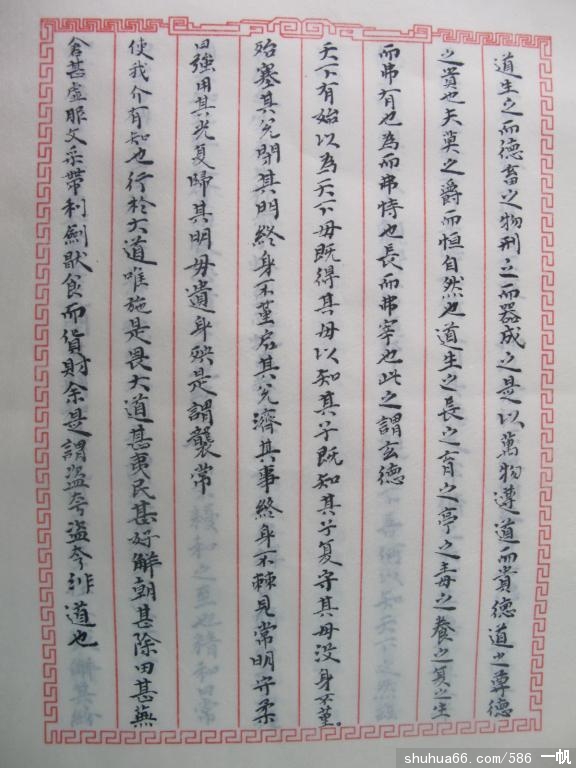 道生之而德畜之物刑之而器成之是以萬物遵道而貴德道之尊德
之貴也夫莫之爵而恒自然也道生之長之育之亭之毒之養之复之生
而弗有也為而弗恃也長而弗宰也此之謂玄德
天下有始以為天下母既得其母以知其子既知其子复守其母沒身不堇。
始塞其兌閉其門終身不堇启其兌濟其事終身不棘見常明守柔
曰強用其光复歸其明毋遺身殃是謂襲常
使我介有知也行於大道唯施是畏大道甚夷民甚好解朝甚除田甚蕪
倉甚虛服文采帶利劍猒食而貨財余是謂盜夸盜夸非道也
shuhua66.com/586 一帆